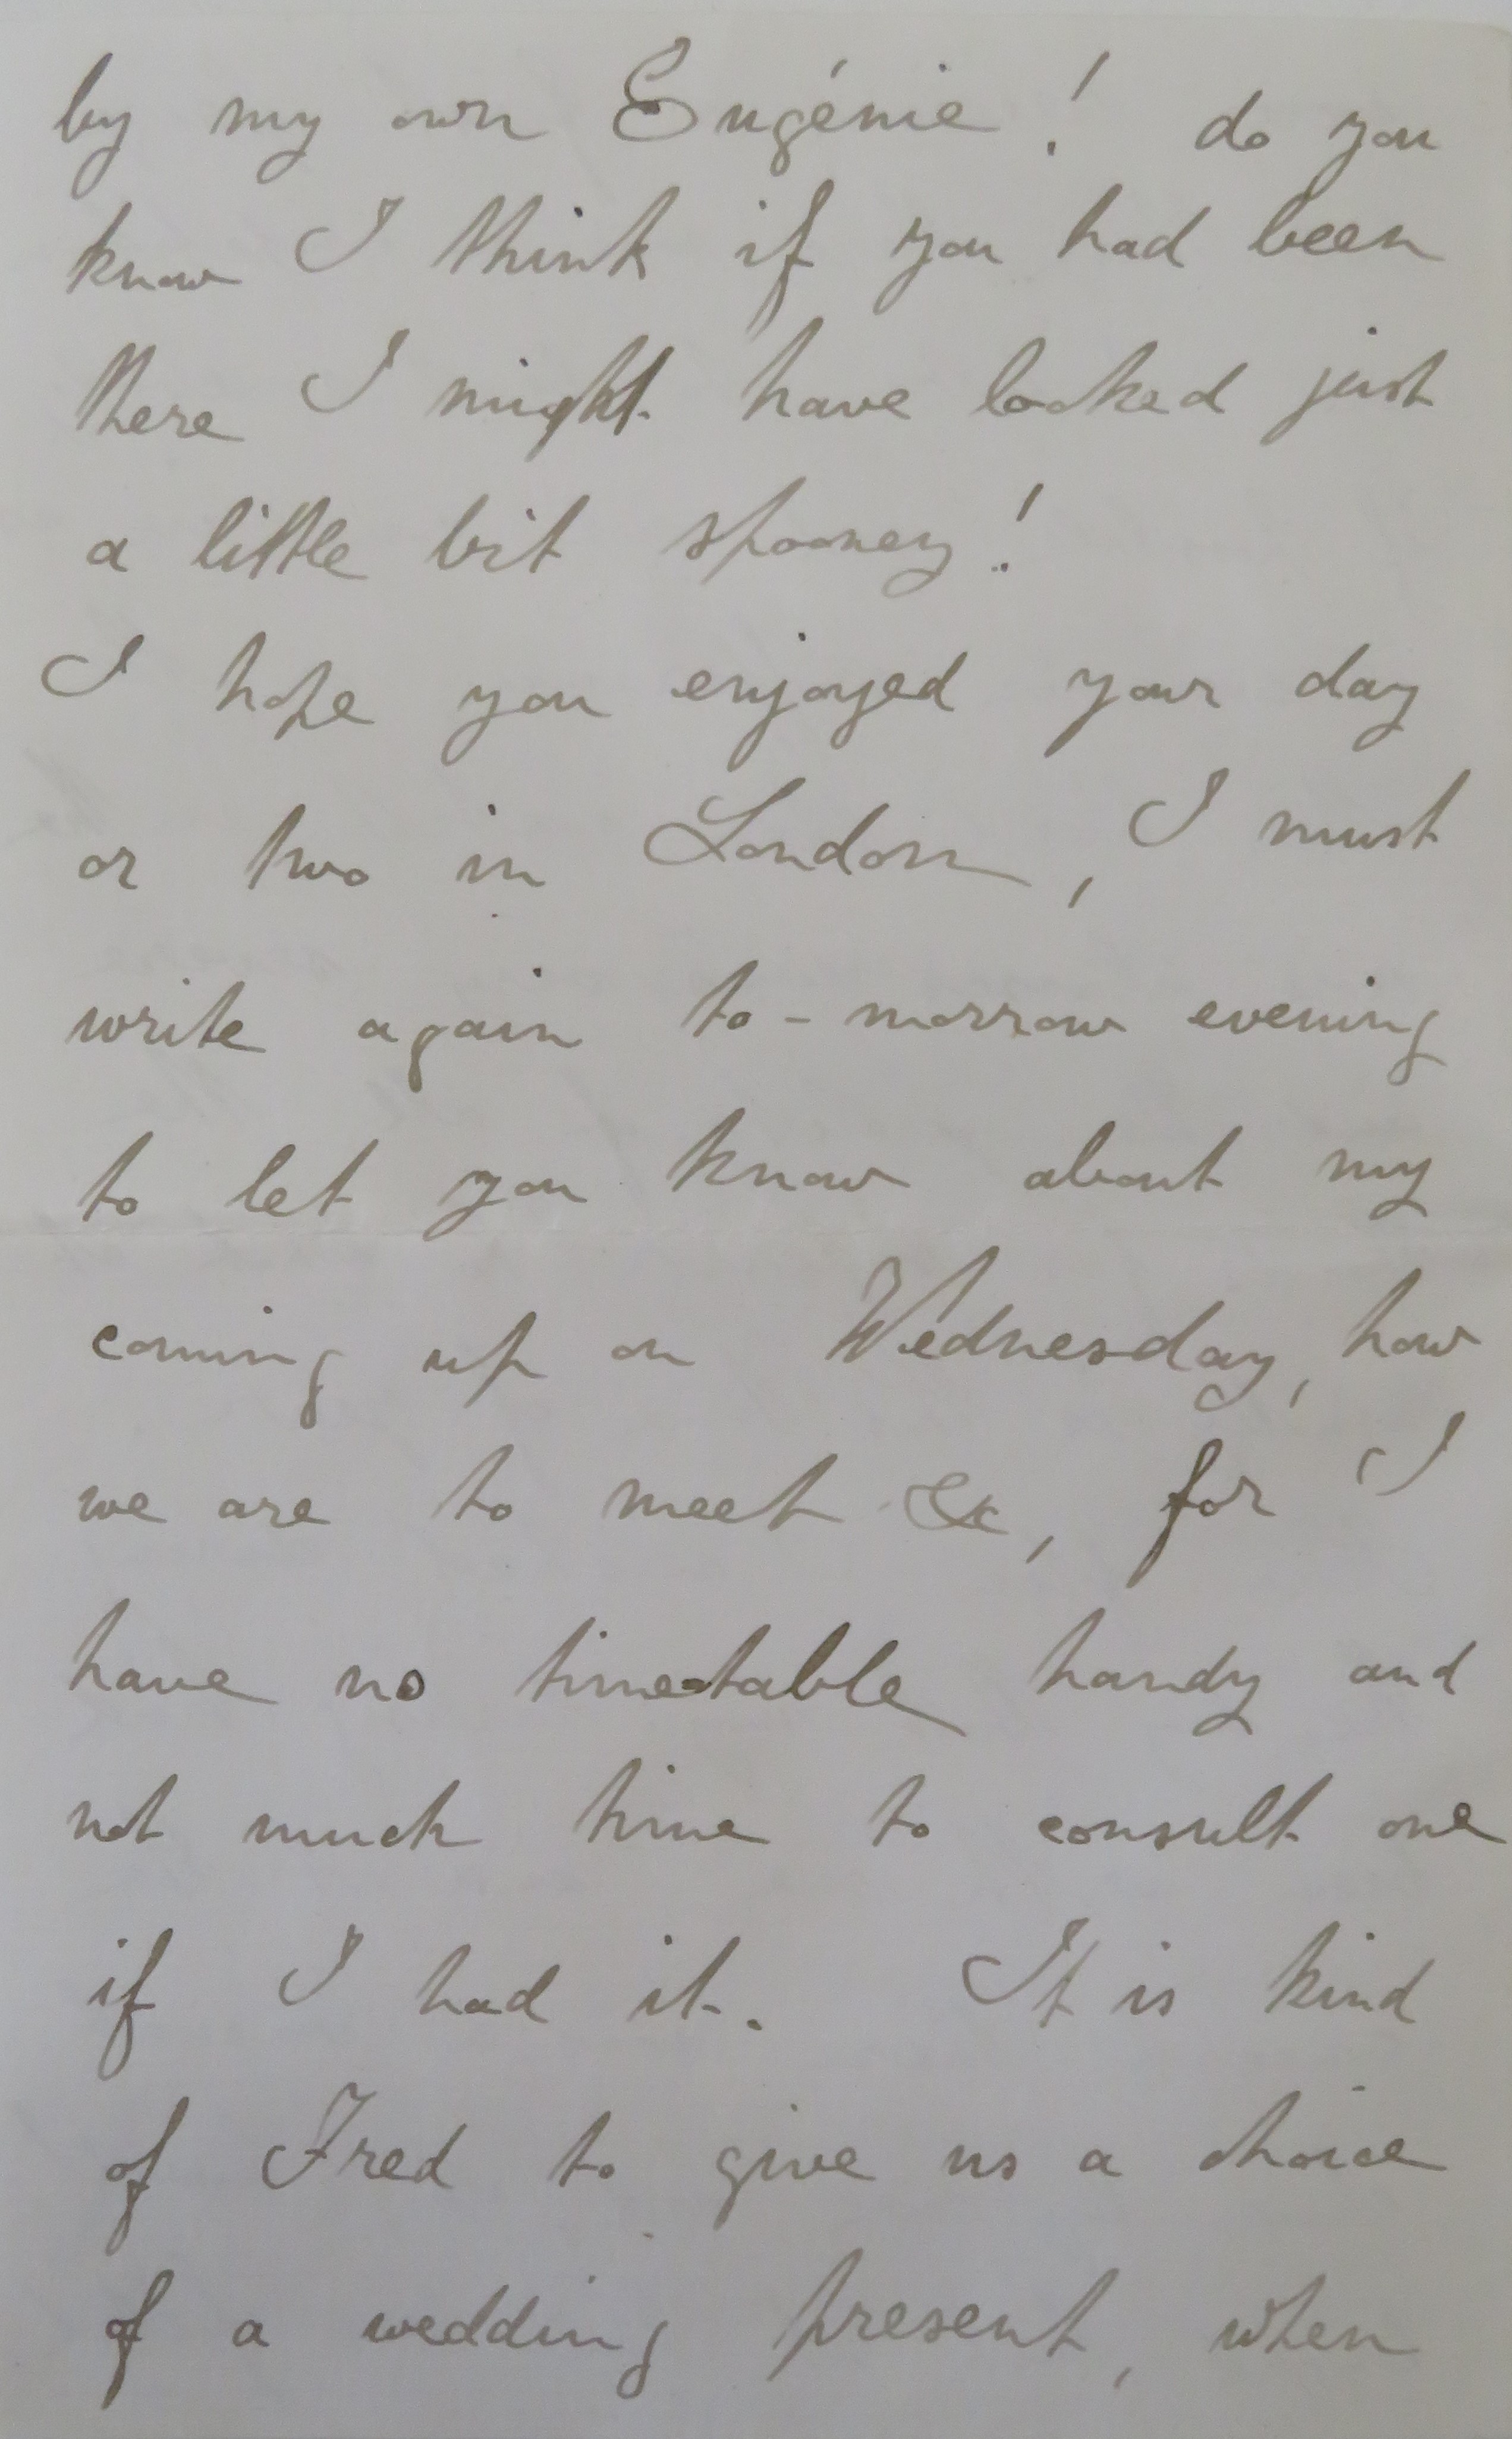 by my own Eugénie! do you
know I think if you had been
there I might have looked just
a little bit spooney!
I hope you enjoyed your day
or two in London, I must
write again to-morrow evening
to let you know about my
coming up on Wednesday, how
we are to meet &c, for I
have no time-table handy and
not much time to consult one
if I had it. It is kind
of Fred to give us a choice
of a wedding present, when